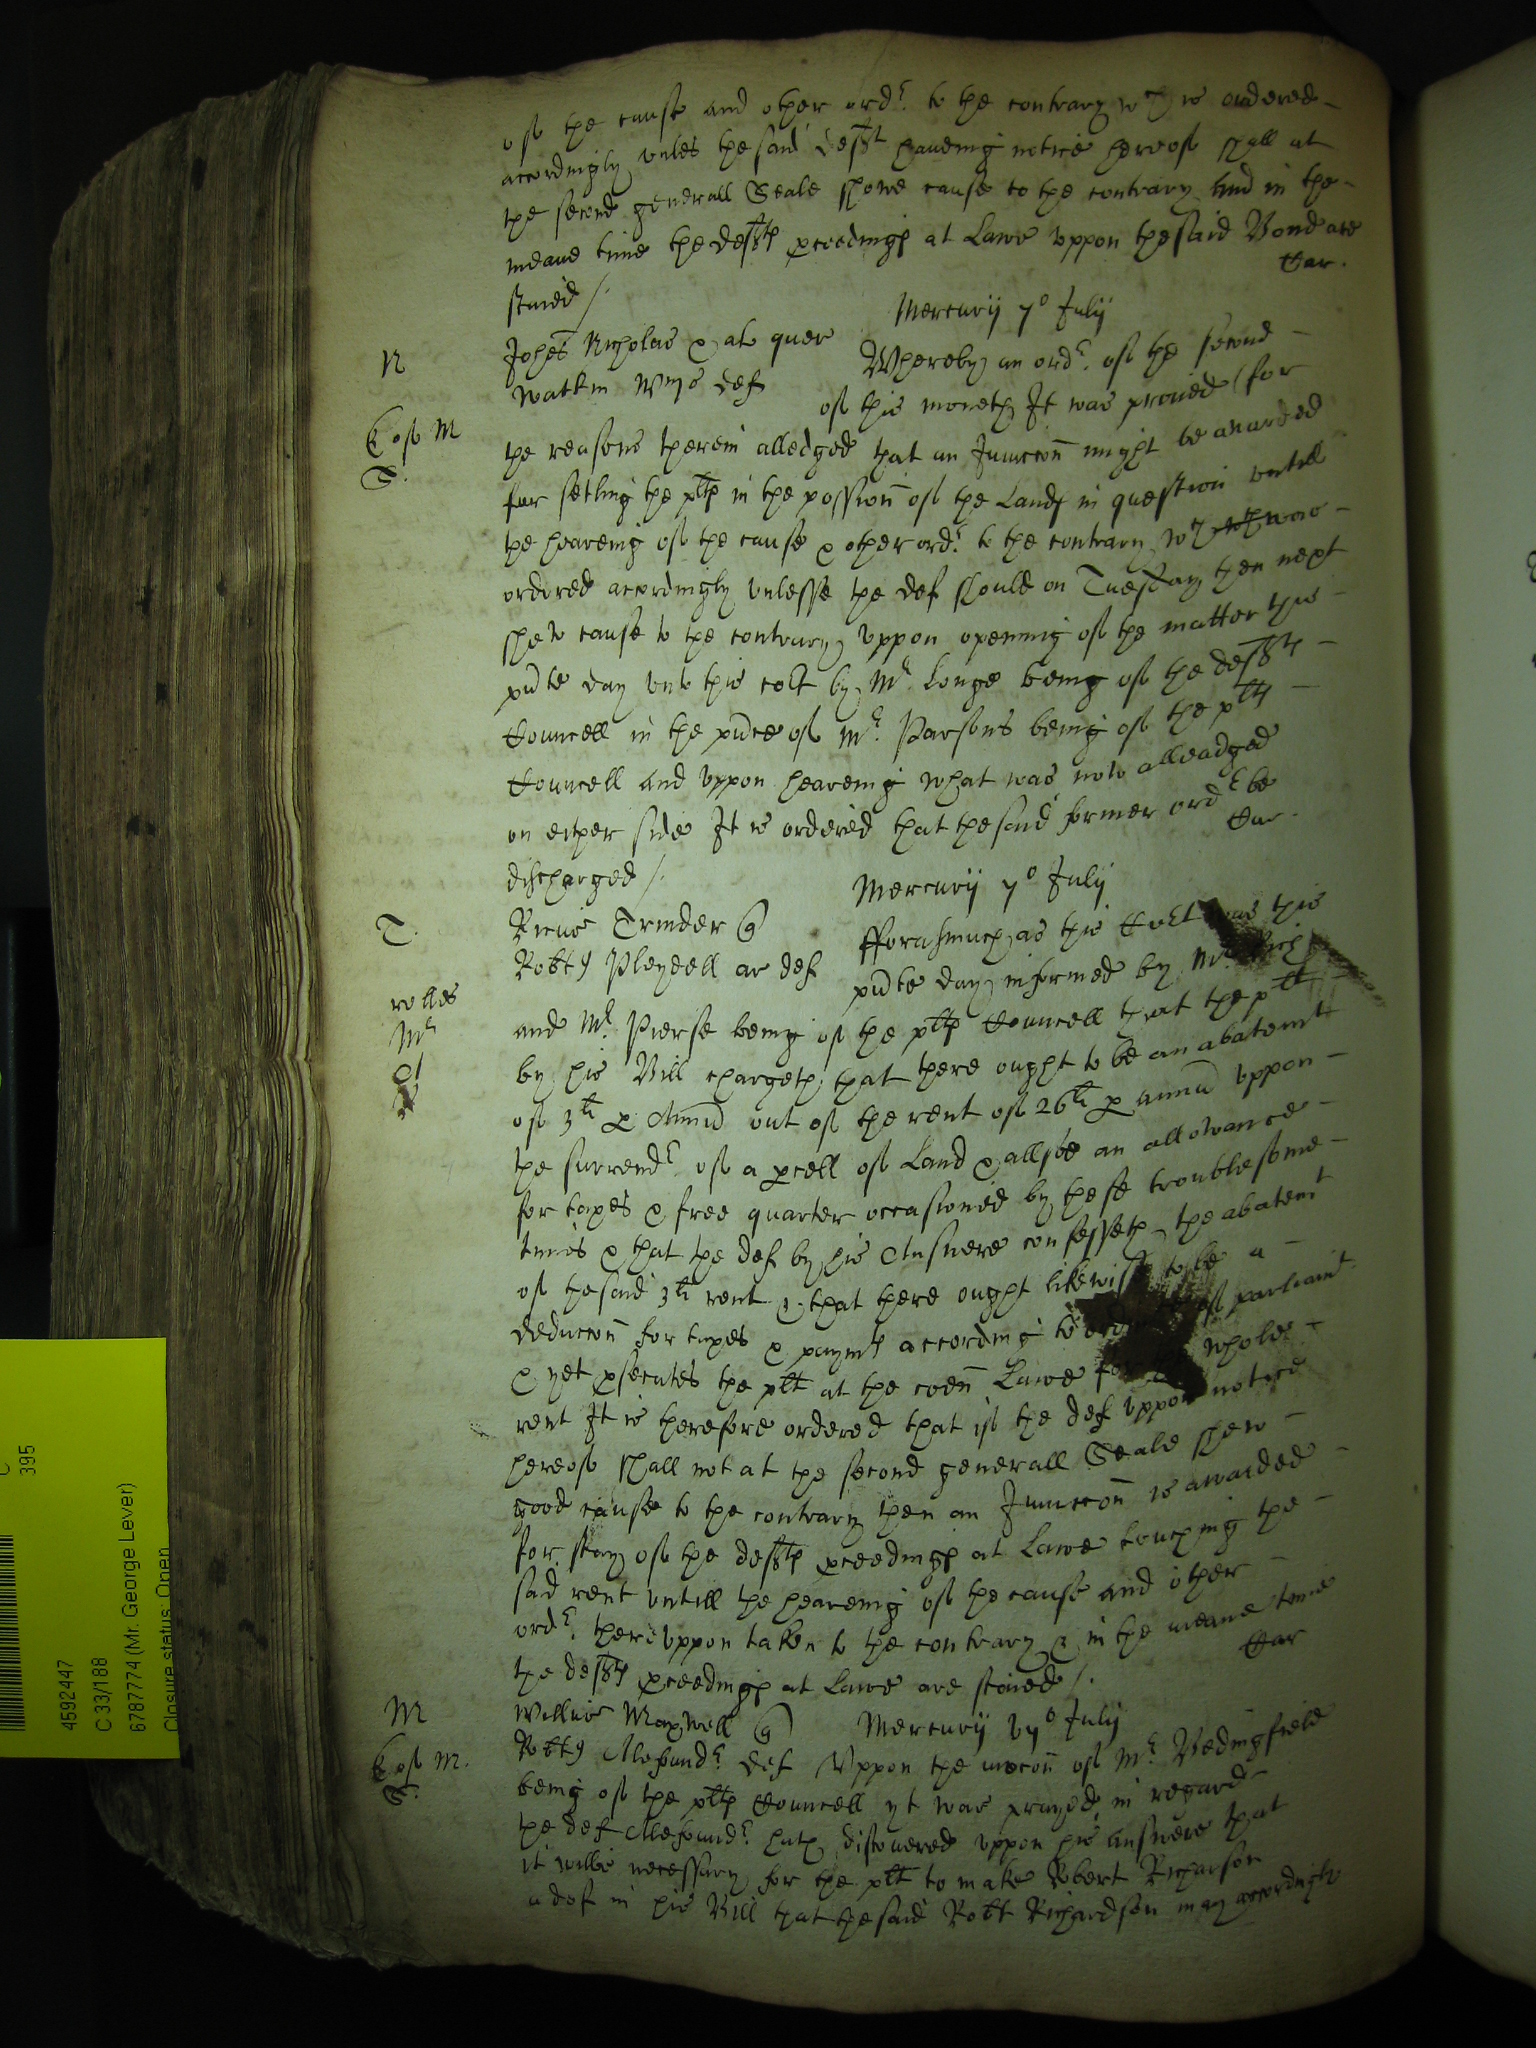 of the cause and other ordr to the contrary wch is ordered
accordingly unles the said deft haueing notice hereof shall at
the second generall Seale shewe cause to the contrary And in the
meane time the defts pceedings at Lawe uppon the said Bond are
staied /
Mercurij 7o Julij
N
Johes Nicholas & al quer
Whereby an ordr of the second
Watkin def
of this moneth It was prayed (for
the reasons therein alledged that an Iniuccon might be awarded
for setling the plts in the possion of the Lands in question untill
the heareing of the cause & other ordr to the contrary wch was
ordered accordingly unlesse the def should on Tuesday then next
shew cause to the contrary uppon opening of the matter this
pnte day unto this cort by Mr Longe being of the defts
Councell in the pnce of Mr Parsons being of the plts
Councell and uppon heareing what was now alleadged
on either side It is ordered that the said former ordr be
discharged /
Mercurij 7o Julij
T.
Ricus Trinder
Robtus Pleydell ar def
fforasmuch as this Cort was this
pnte day informed by Mr Rich
rolles
and Mr Pierse being of the plts Councell that the plt
by his Bill chargeth that there ought to be an abatemt
of 3li p Annu out of the rent of 26li p annu uppon
the surrendr of a pcell of Land & allsoe an allowance
for taxes & free quarter occasioned by these troublesome
times & that the def by his Answere confesseth the abatemt
of the said 3li rent & that there ought likewise to be a
deduccon for taxes & paymts according to of parliamt
& yet psecutes the plt at the coen Lawe for the whole
rent It is therefore ordered that if the def uppon notice
hereof shall not at the second generall Seale shew
good cause to the contrary then an Iniuccon is awarded
for stay of the defts pceedings at Lawe touching the
said rent untill the heareing of the cause and other
ordr thereuppon taken to the contrary & in the meane time
the defts pceedings at Lawe are staied /.
M
Willus Maxwell
Mercurij 7o Julij
Robtus Alexandr def
Uppon the mocon of Mr Bedingfield
being of the plts Councell yt was prayed in regard
the def Alexandr hath discouered uppon his Answere that
it wilbe necessary for the plt to make Robert Richarson
a def in his Bill that the said Robt Richardson may accordingly
4592447
C 33/188
6787774 (Mr. George Lever)
Closure status: Open
395